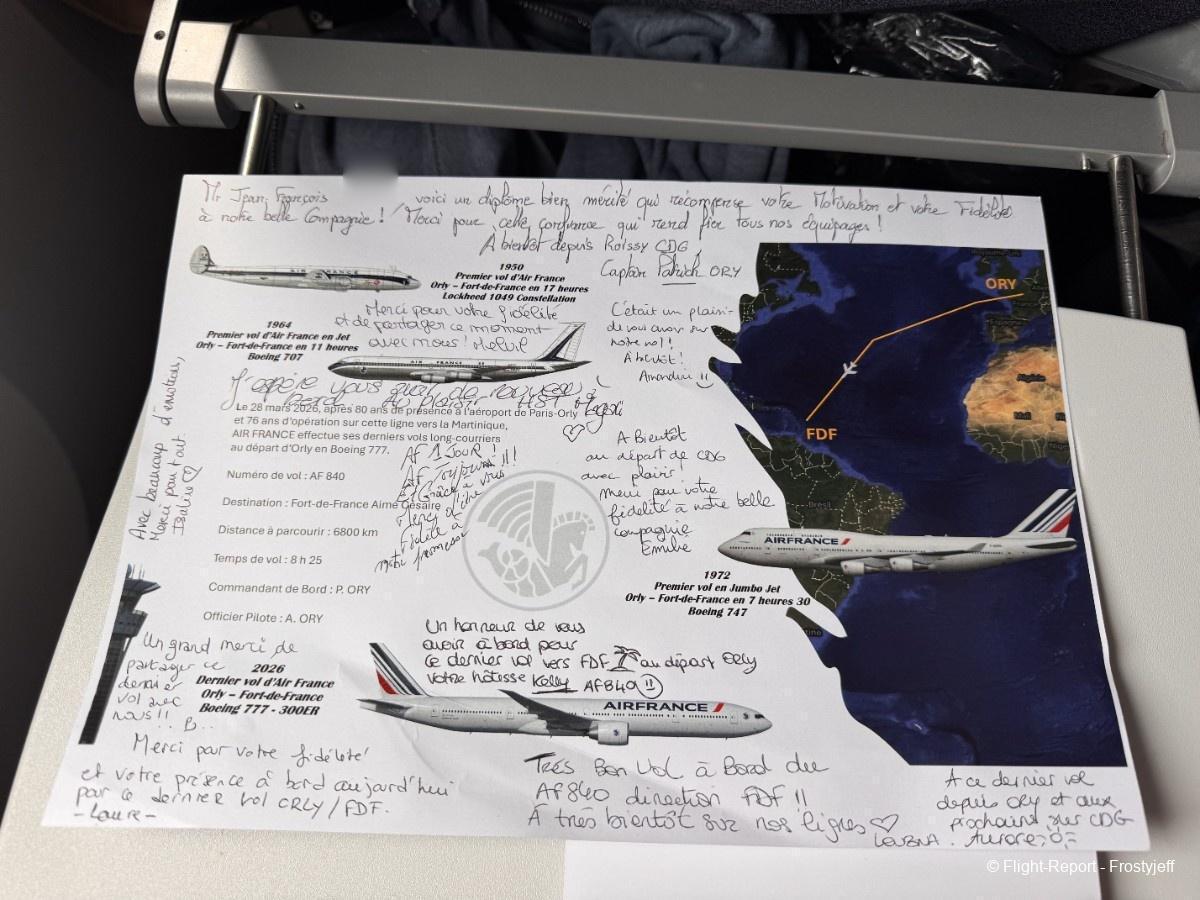 Mr Jean François
voici un diplôme bien mérité qui récompense votre Motivation et votre Fidélité
à notre belle Compagnie ! Merci pour cette confiance qui rend fier tous nos équipages !
A bientôt depuis Roissy CDG
Captain Patrick ORY
AIR FRANCE
1950
Premier vol d'Air France
Orly – Fort-de-France en 17 heures
Lockheed 1049 Constellation
Merci pour votre fidélité
et de partager ce moment
avec nous !
1964
Premier vol d'Air France en Jet
Orly – Fort-de-France en 11 heures
Boeing 707
AIR FRANCE
C'était un plaisir
de vous avoir sur
notre vol !
A bientôt !
Amandine
ORY
FDF
Algérie
Mali
Brésil
J'espère vous de nouveau
bord Au plaisir
Le 28 mars 2026, après 80 ans de présence à l'aéroport de Paris-Orly
et 76 ans d'opération sur cette ligne vers la Martinique,
AIR FRANCE effectue ses derniers vols long-courriers
au départ d'Orly en Boeing 777.
Numéro de vol : AF 840
Destination : Fort-de-France Aimé Césaire
Distance à parcourir : 6800 km
Temps de vol : 8 h 25
Commandant de Bord : P. ORY
Officier Pilote : A. ORY
AF 1 JOUR !
AF Toujours !!!
Et Grâce à vous
Merci d'être
Fidèle à
notre
Avec beaucoup d'émotions,
Merci pour tout.
Isabelle
A Bientôt
au départ de CDG
avec plaisir
merci pour votre
fidélité à notre belle
compagnie
Emilie
AIRFRANCE
1972
Premier vol en Jumbo Jet
Orly – Fort-de-France en 7 heures 30
Boeing 747
Un honneur de vous
avoir à bord pour
ce dernier vol vers FDF au départ Orly
votre hôtesse Kelly AF840
Un grand merci de
partager ce
dernier
vol avec
nous !!
B...
2026
Dernier vol d'Air France
Orly – Fort-de-France
Boeing 777 - 300ER
AIRFRANCE
Merci pour votre fidélité
et votre présence à bord aujourd'hui
pour ce dernier vol ORLY / FDF.
- Laure -
Très Bon Vol à Bord du
AF840 direction FDF !!
À très bientôt sur nos lignes
LOUBNA.
A ce dernier vol
depuis ORY et aux
prochains sur CDG
Aurore
© Flight-Report - Frostyjeff